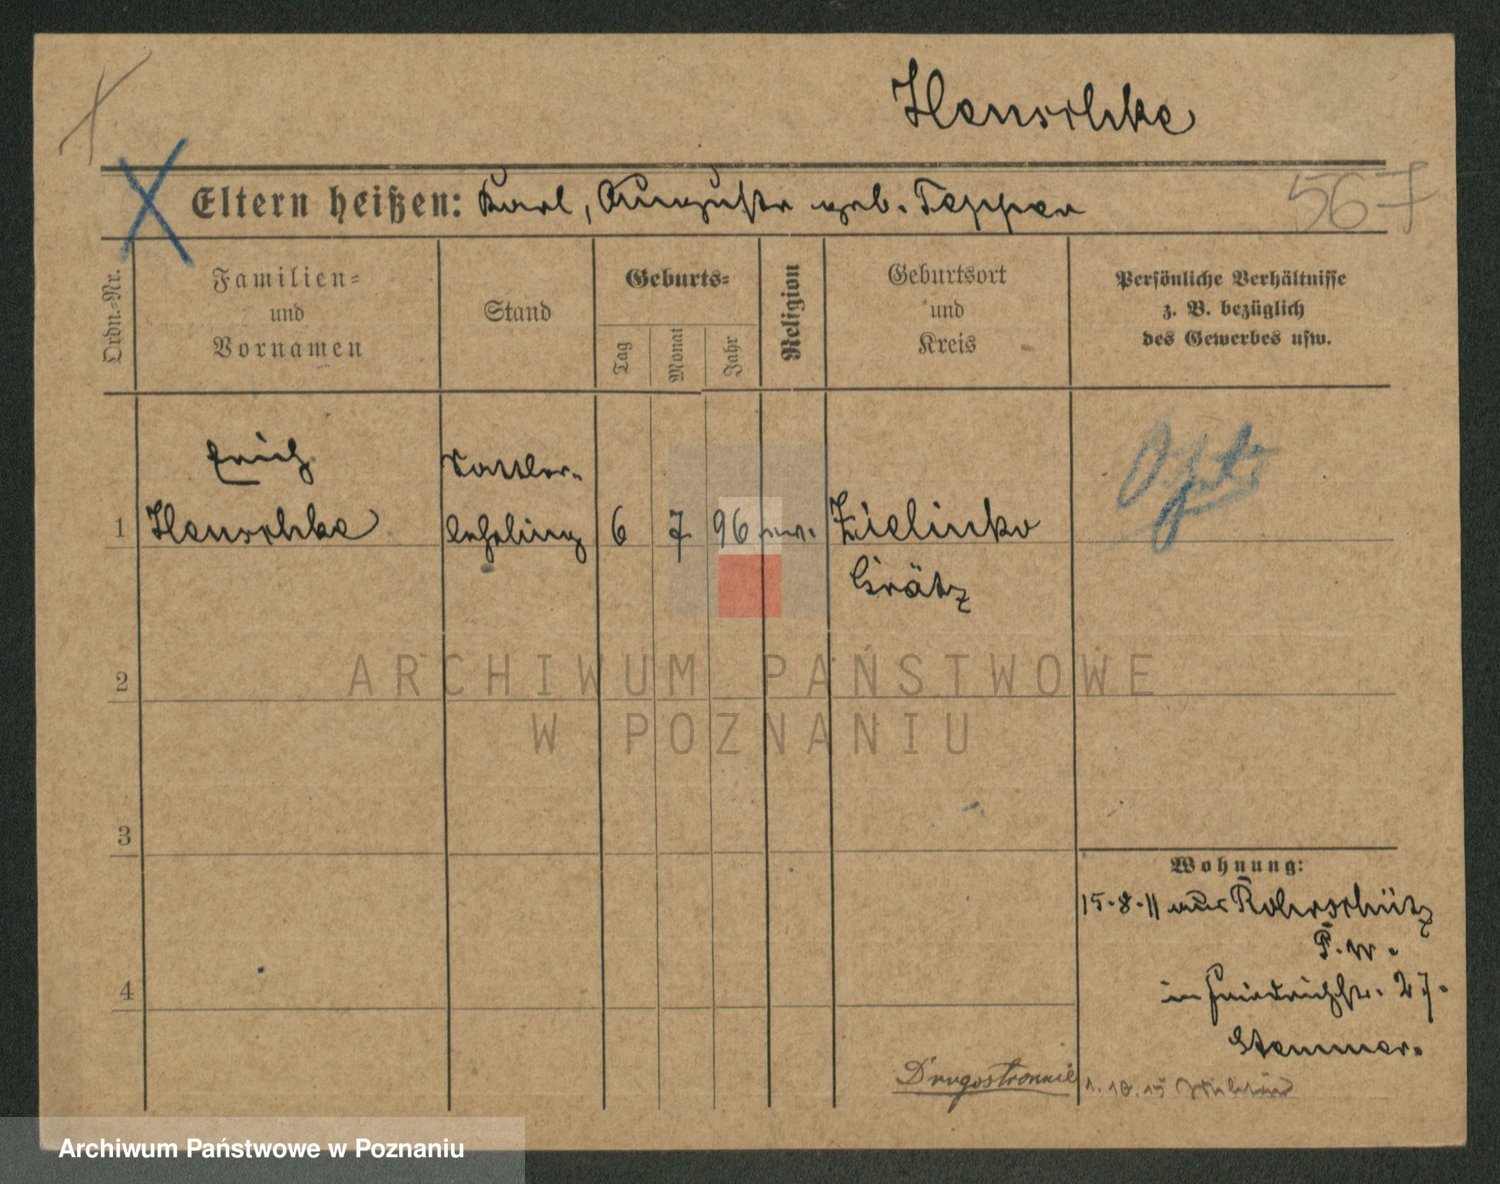 Henschke
Eltern heißen: Karl, Auguste geb. Tepper
567
Ordn.-Nr.
Familien-
und
Vornamen
Stand
Geburts-
Tag
Monat
Jahr
Religion
Geburtsort
und
Kreis
Persönliche Verhältnisse
z. B. bezüglich
des Gewerbes usw.
Erich
Sattler-
1 Henschke lehrling 6 7 96 ev. Zielinko
Grätz
2
3
4
Wohnung:
15.8.11 aus Rohrschütz
P. W.
in Friedrichstr. 27.
Stemmer.
Drugostronnie
1.10.15
ARCHIWUM PAŃSTWOWE
W POZNANIU
Archiwum Państwowe w Poznaniu